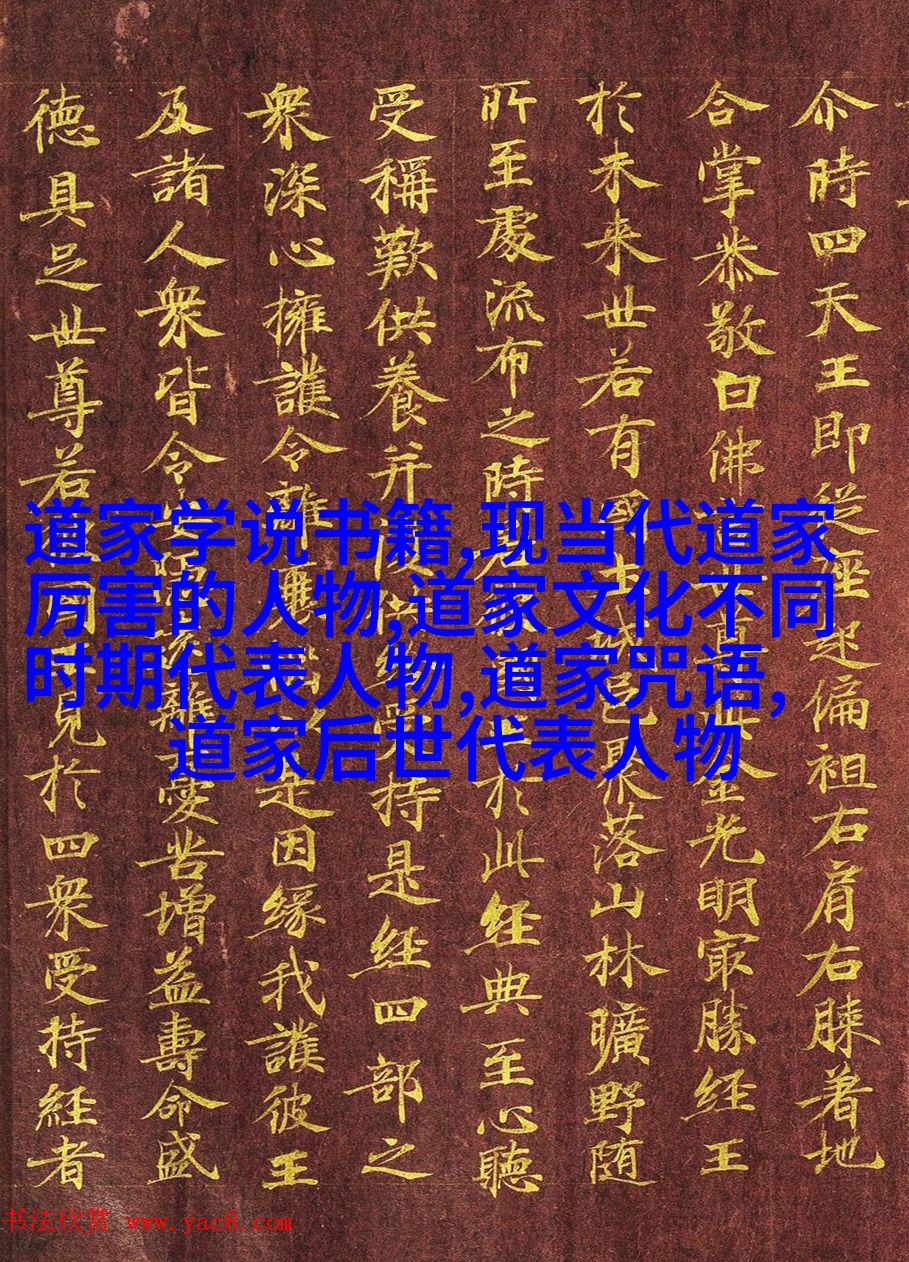 尒時四天王即従座起偏袒右肩右膝著地
合掌恭敬白佛世尊金光明冣勝経王
於未来世若有國土城邑聚落山林曠野随
所至處流布之時於此経典至心聽
受稱歎供養并復持是経四部之
衆深心擁護令離是因緣我護彼王
及諸人衆皆令離憂苦增益壽命威
德具足世尊若見於四衆受持経者
道家学说书籍,现当代道家
厉害的人物,道家文化不同
时期代表人物,道家咒语,
道家后世代表人物
书法欣赏 www.yac8.com